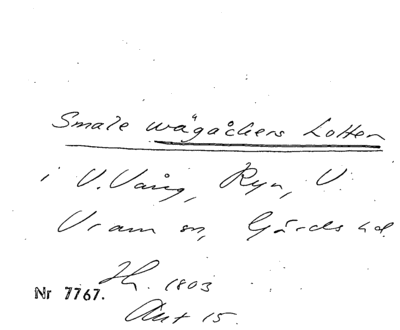 Smale wägåkers Lotten
i V. Vång, Ryn, V.
Vram sn, Gärds hd.
Nr 7767.
1803
Akt 15.